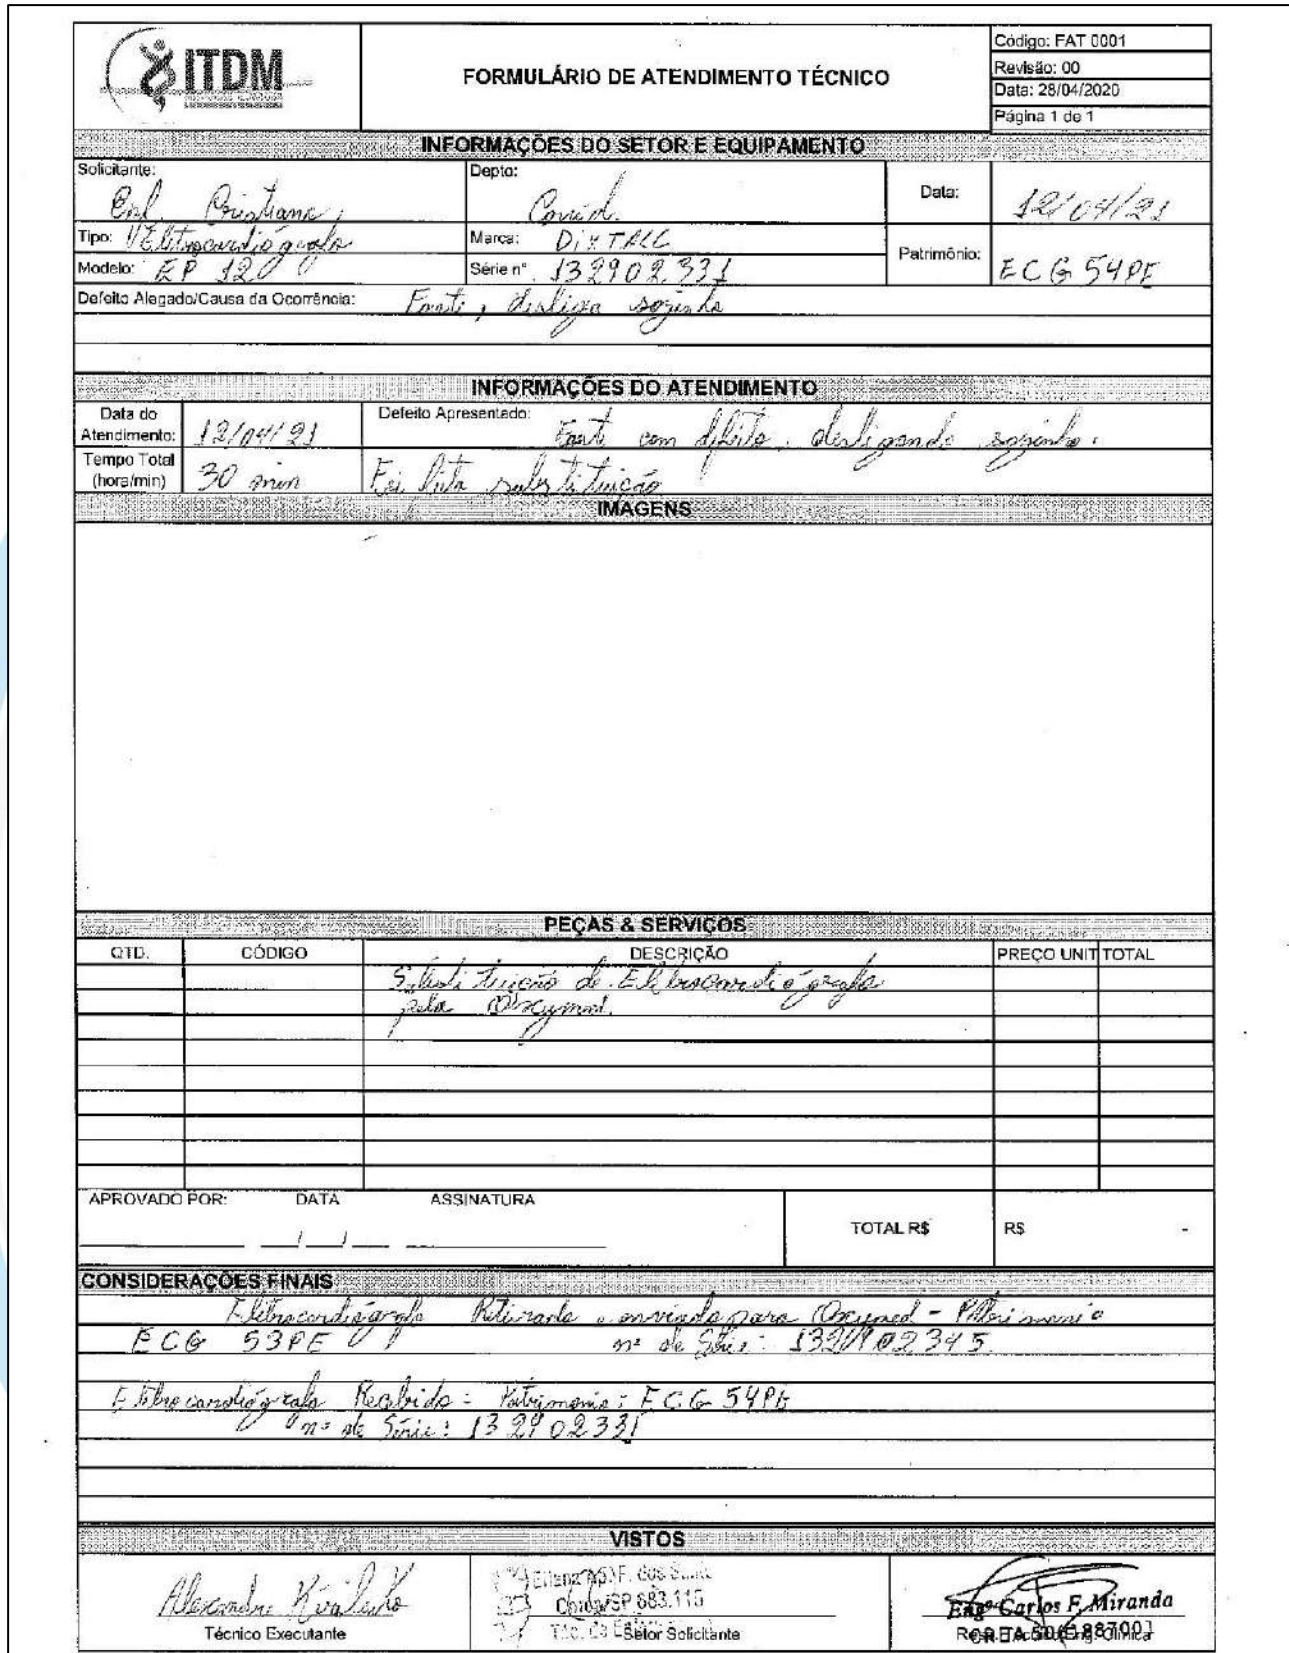 ITDM
FORMULÁRIO DE ATENDIMENTO TÉCNICO
Código: FAT 0001
Revisão: 00
Data: 28/04/2020
Página 1 de 1
INFORMAÇÕES DO SETOR E EQUIPAMENTO
Solicitante: Enf. Cristiane
Depto: Covid.
Data: 12/04/21
Tipo: Eletrocardiógrafo
Marca: DIXTALL
Patrimônio: ECG 54PE
Modelo: EP 12
Série nº 132902331
Defeito Alegado/Causa da Ocorrência: Fonte, desliga sozinho
INFORMAÇÕES DO ATENDIMENTO
Data do Atendimento: 12/04/21
Defeito Apresentado: Fonte com defeito. desligando sozinho.
Tempo Total (hora/min) 30 min
Foi feita substituição
IMAGENS
PEÇAS & SERVIÇOS
QTD. CÓDIGO DESCRIÇÃO PREÇO UNIT TOTAL
Substituição de Eletrocardiógrafo
pela Oxymed.
APROVADO POR: DATA ASSINATURA
TOTAL R$ R$ -
CONSIDERAÇÕES FINAIS
Eletrocardiógrafo Retirado e enviado para Oxymed - Patrimonio
ECG 53PE nº de Série: 132902345
Eletrocardiógrafo Recebido: Patrimonio: ECG 54PE
nº de Série: 132902331
VISTOS
Alexandre
Técnico Executante
Coren/SP 883.115
Setor Solicitante
Engº Carlos F. Miranda
CREA 5061887001